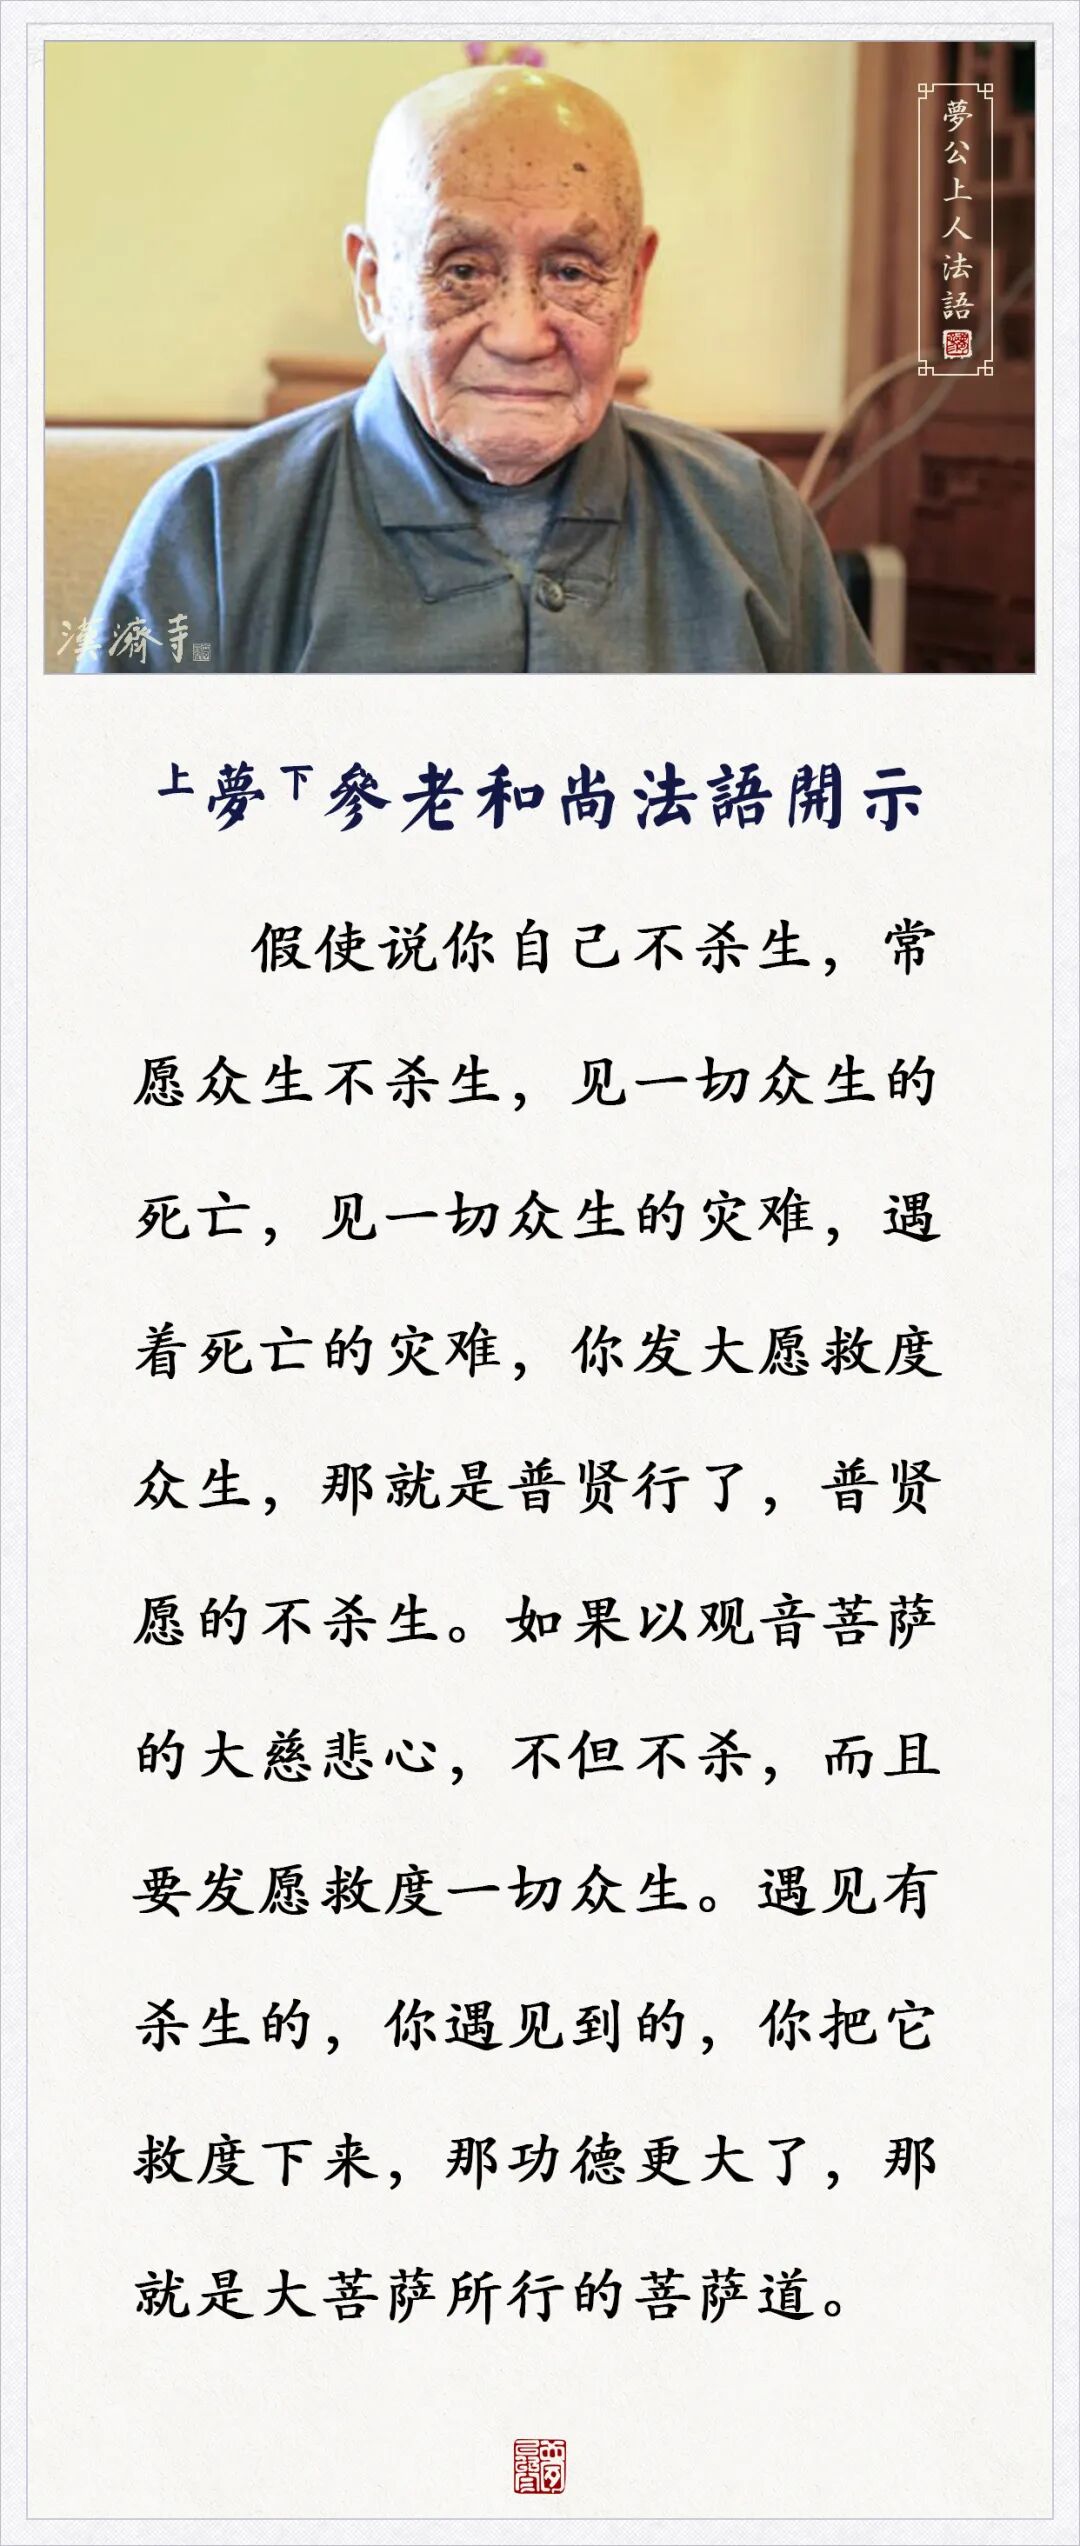 夢公上人法語
漢濟寺
上夢下參老和尚法語開示
假使说你自己不杀生，常
愿众生不杀生，见一切众生的
死亡，见一切众生的灾难，遇
着死亡的灾难，你发大愿救度
众生，那就是普贤行了，普贤
愿的不杀生。如果以观音菩萨
的大慈悲心，不但不杀，而且
要发愿救度一切众生。遇见有
杀生的，你遇见到的，你把它
救度下来，那功德更大了，那
就是大菩萨所行的菩萨道。